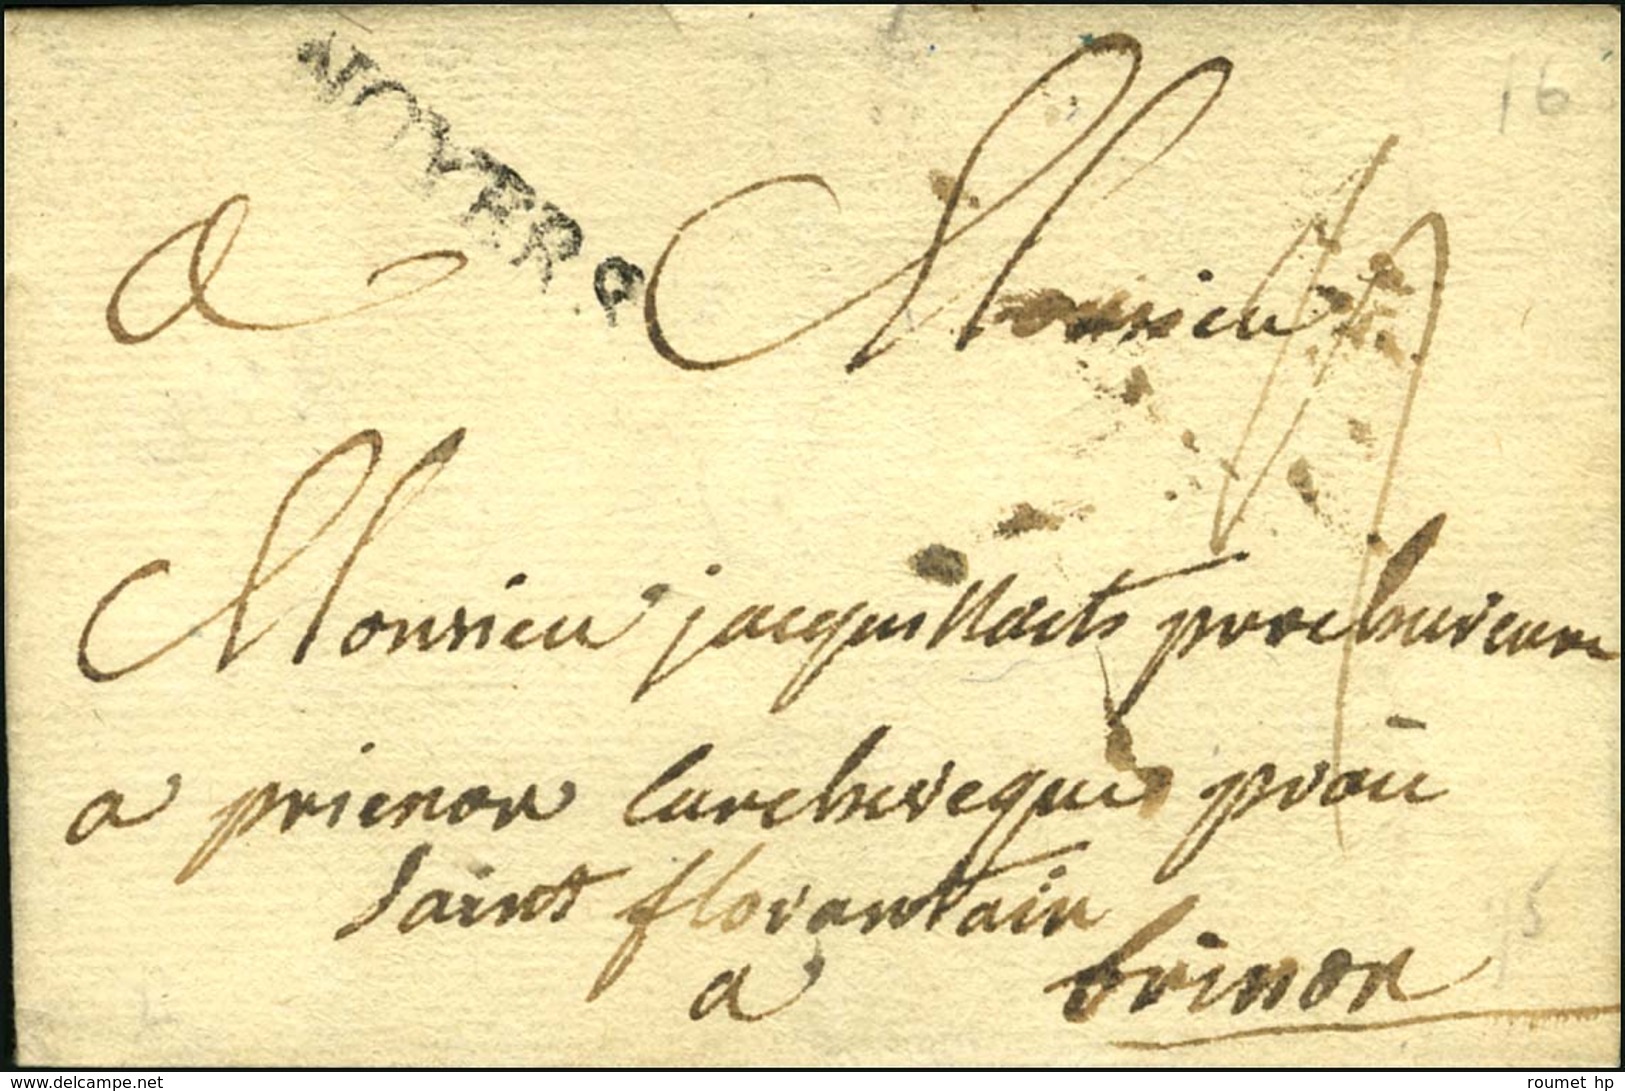 16
NOYERS
a Monsieur
Monsieur jacquillart procureure
a prienon larchevesque proü
saint florantain
a brinon
15
delcampe.net
roumet hp